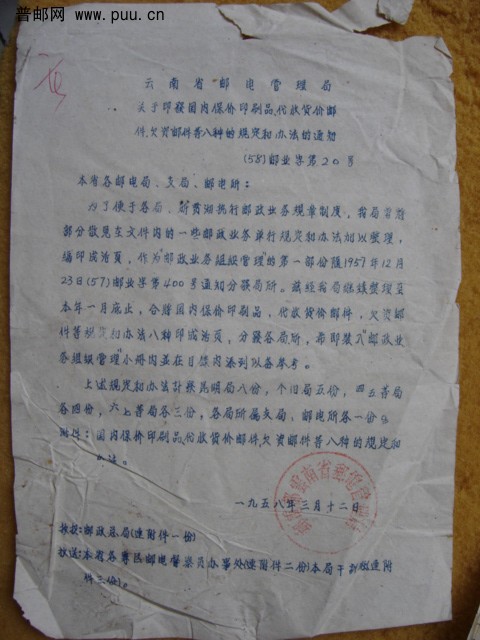 普邮网 www.puu.cn
云南省邮电管理局
关于印发国内保价印刷品、代收货价邮
件、欠资邮件等八种的规定和办法的通知
(58)邮业字第20号
本省各邮电局、支局、邮电所:
为了便于各局、所贯澈执行邮政业务规章制度,我局曾将
部分散见在文件内的一些邮政业务单行规定和办法加以整理,
编印成活页,作为"邮政业务组织管理"的第一部份随1957年12月
23日(57)邮业字第400号通知分发局所。兹经省局继续整理至
本年一月底止,合将国内保价印刷品,代收货价邮件,欠资邮
件等规定和办法八种印成活页,分发各局所,希即装入"邮政业
务组织管理"小册内並在目录内添列以备参考。
上述规定和办法计发昆明局八份,个旧局五份,四五等局
各四份,六上等局各三份,各局所属支局、邮电所各一份。
附件:国内保价印刷品、代收货价邮件、欠资邮件等八种的规定和
办法。
一九五八年三月十二日
抄报:邮政总局(连附件一份)
抄送:本省各专区邮电督察员办事处(连附件二份)本局干训班(连附
件三份)。